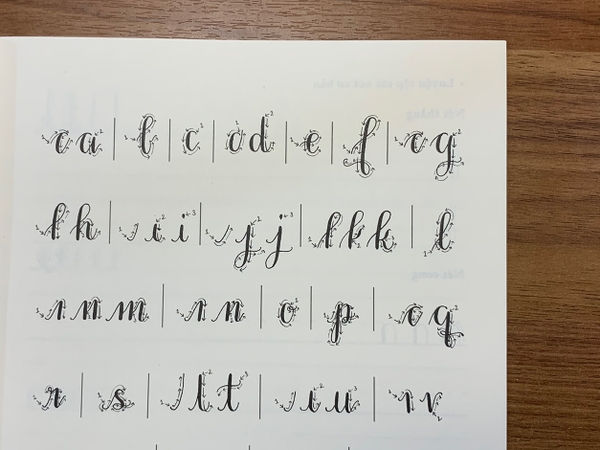 a a | b | c | o d | e | f | c g
l h | i i | j j | l k k | l
ı n m | ı n | o | p | c q
r | s | l t | ı u | ı v